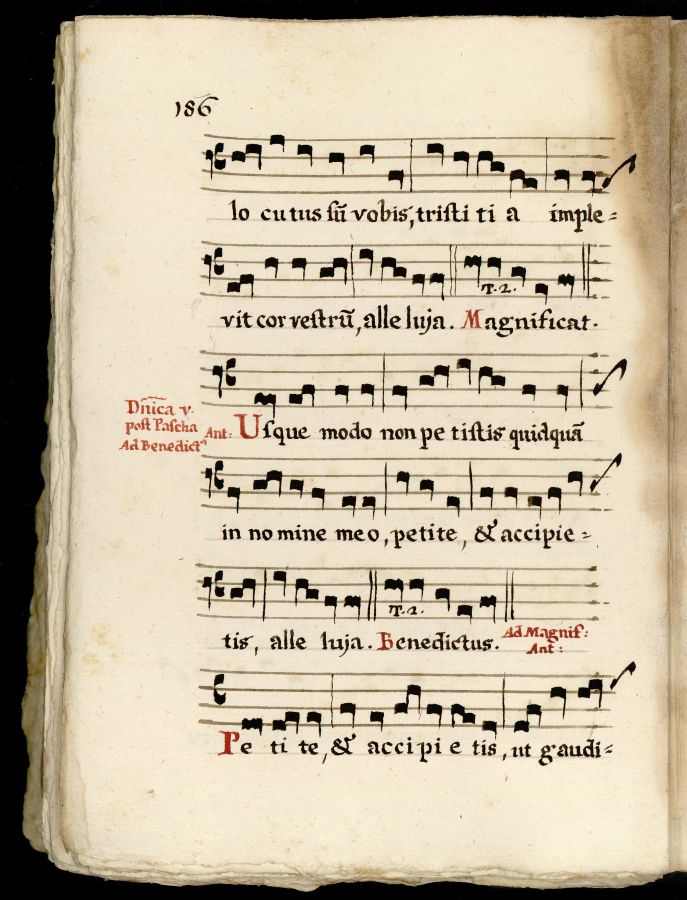 186
lo cutus sū vobis, tristi ti a imple=
T. 2.
vit cor vestrū, alle luja. Magnificat.
Dn̄ica v.
post Pascha
Ad Benedictᵒ
Ant: Usque modo non pe tistis quidquā
in no mine me o, petite, & accipie=
T. 2.
tis, alle luja. Benedictus. Ad Magnif:
Ant:
Pe ti te, & acci pi e tis, ut gaudi=